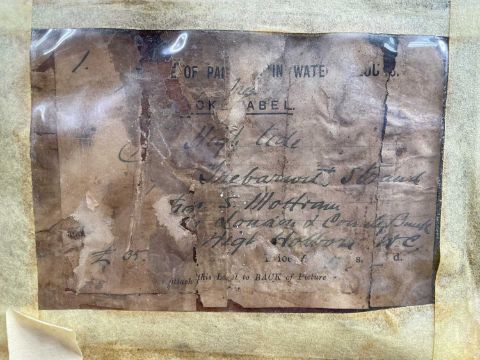 1.
E OF PAI IN WATE
OK LABEL.
High tide
Trebarwith Strand
S. Mottram
London & County Bank
High Holborn WC
£ 35.
s. d.
this Label to BACK of Picture